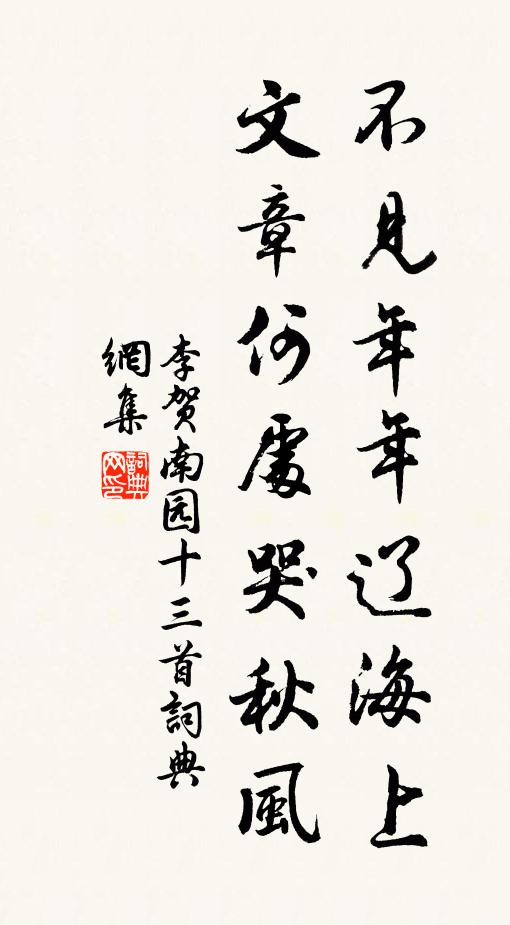 不见年年辽海上
文章何處哭秋風
李贺南园十三首詞典
網集
詞典网印